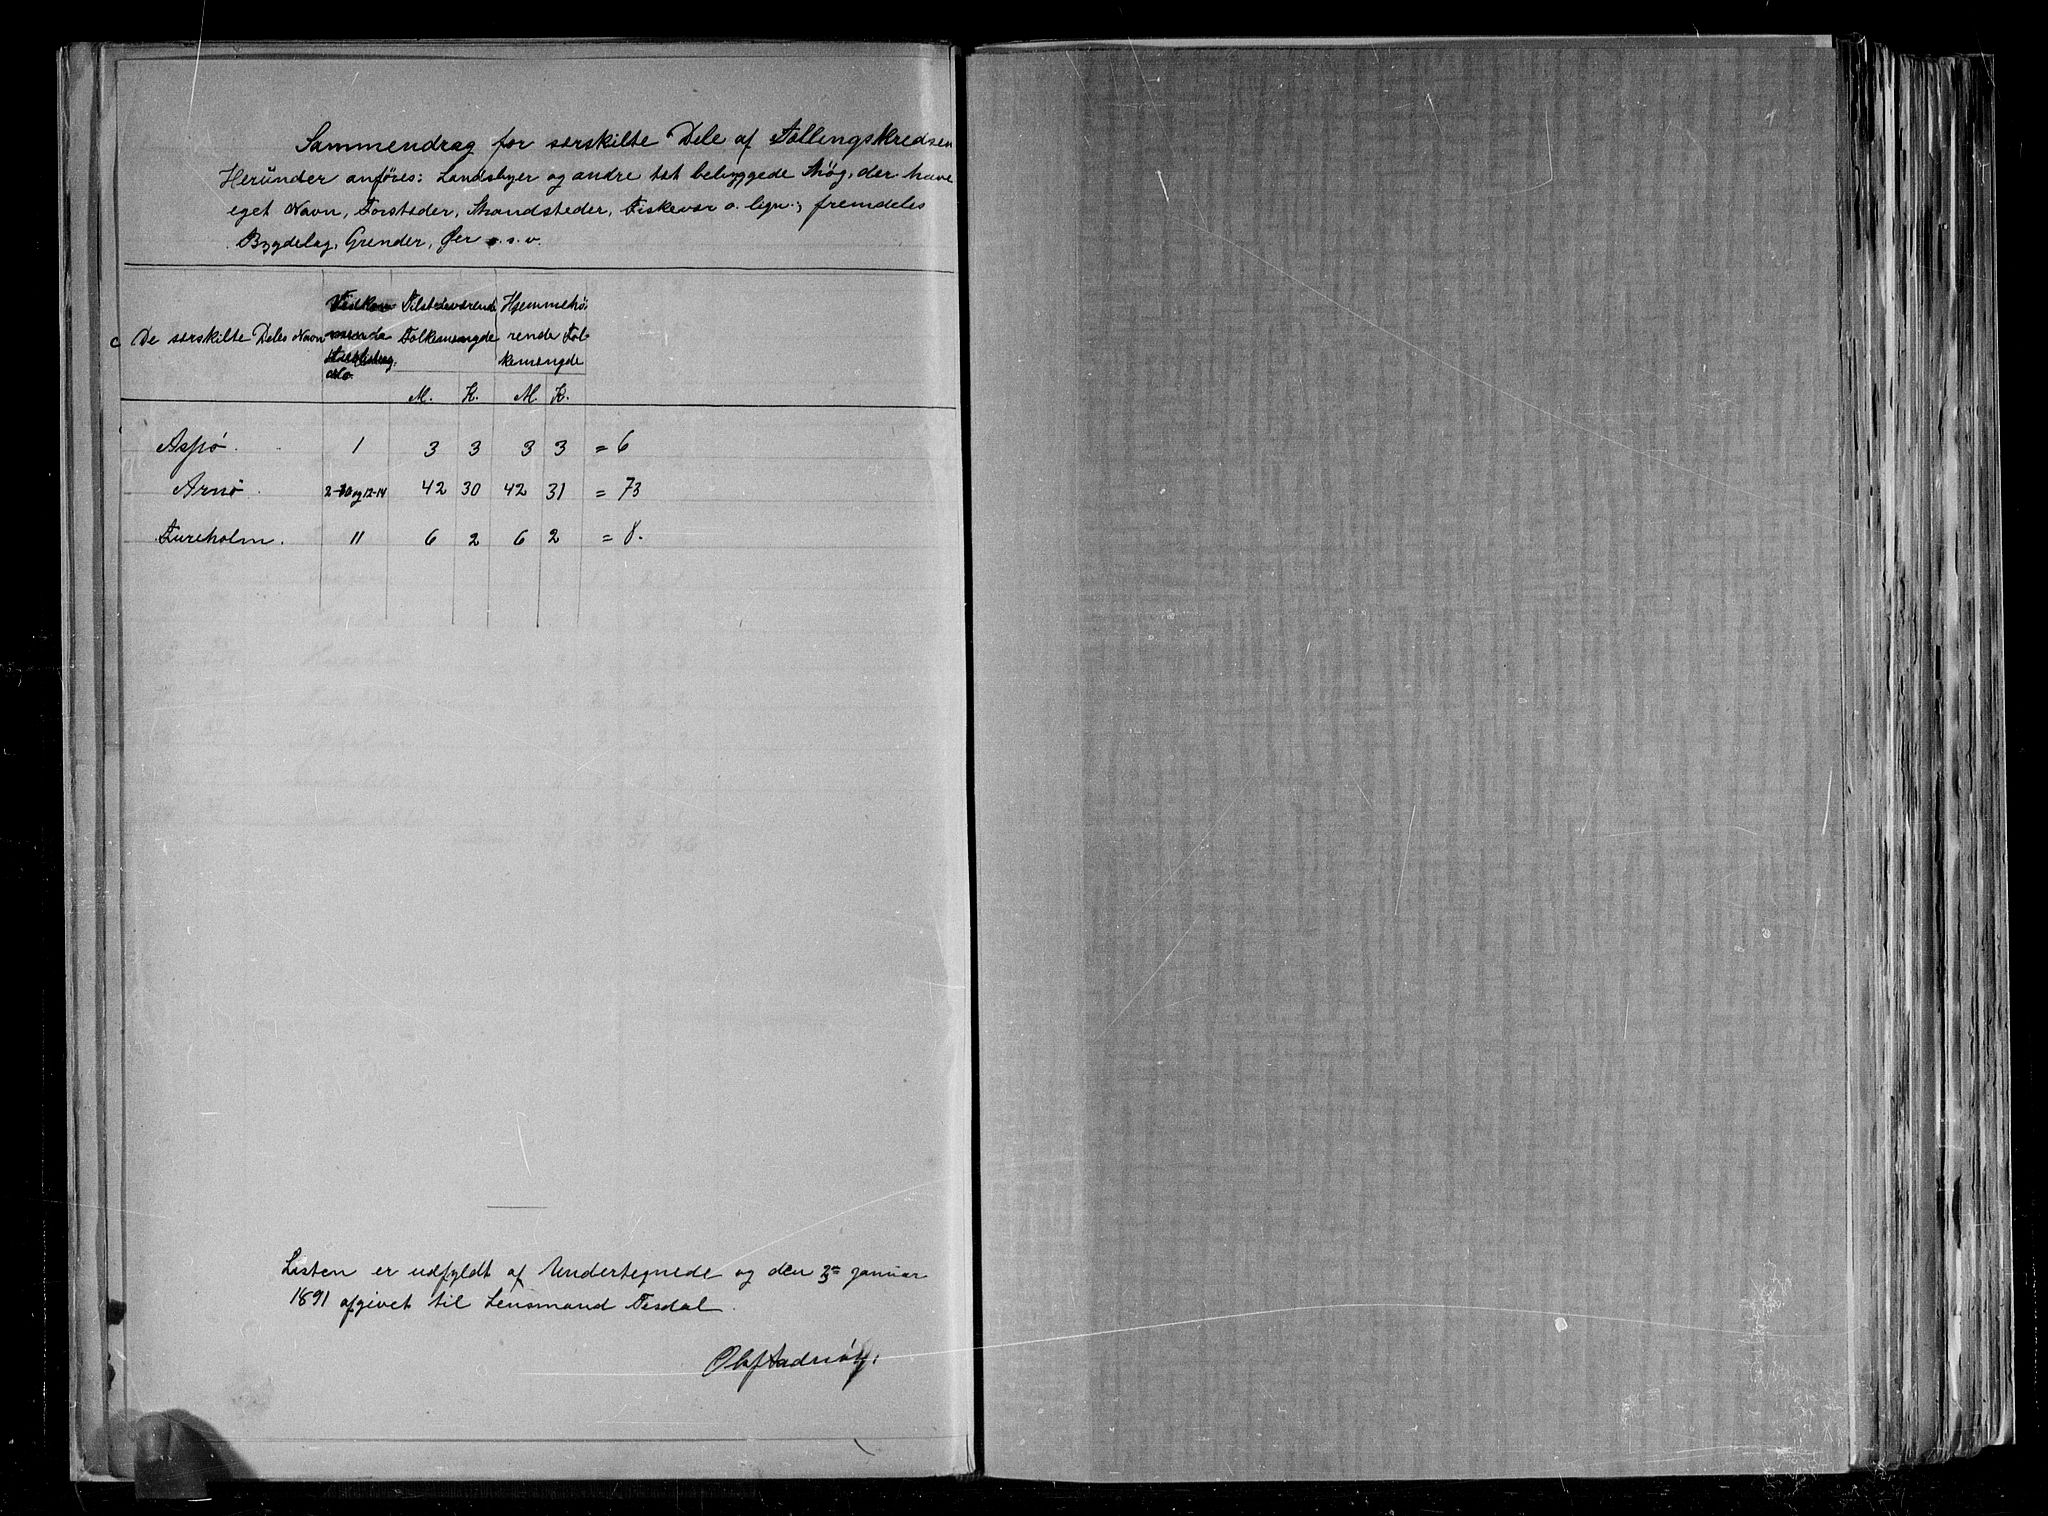 Sammendrag for særskilte Dele af Tællingskredsen
Herunder anføres: Landsbyer og andre tæt bebyggede Strøg, der have
eget Navn, Forstæder, Strandsteder, Fiskevær o. lign.; fremdeles
Bygdelag, Grender, Øer o.s.v.
De særskilte Deles Navn
Vedkommende
Tilstedeværende Folkemængde
Hjemmehørende Folkemængde
M. K. M. K.
Aspø. 1 3 3 3 3 = 6
Arnø. 2-10 og 12-14 42 30 42 31 = 73
Fureholm. 11 6 2 6 2 = 8.
Listen er udfyldt af Undertegnede og den 3die Januar
1891 afgivet til Lensmand Tesdal.
Olaf